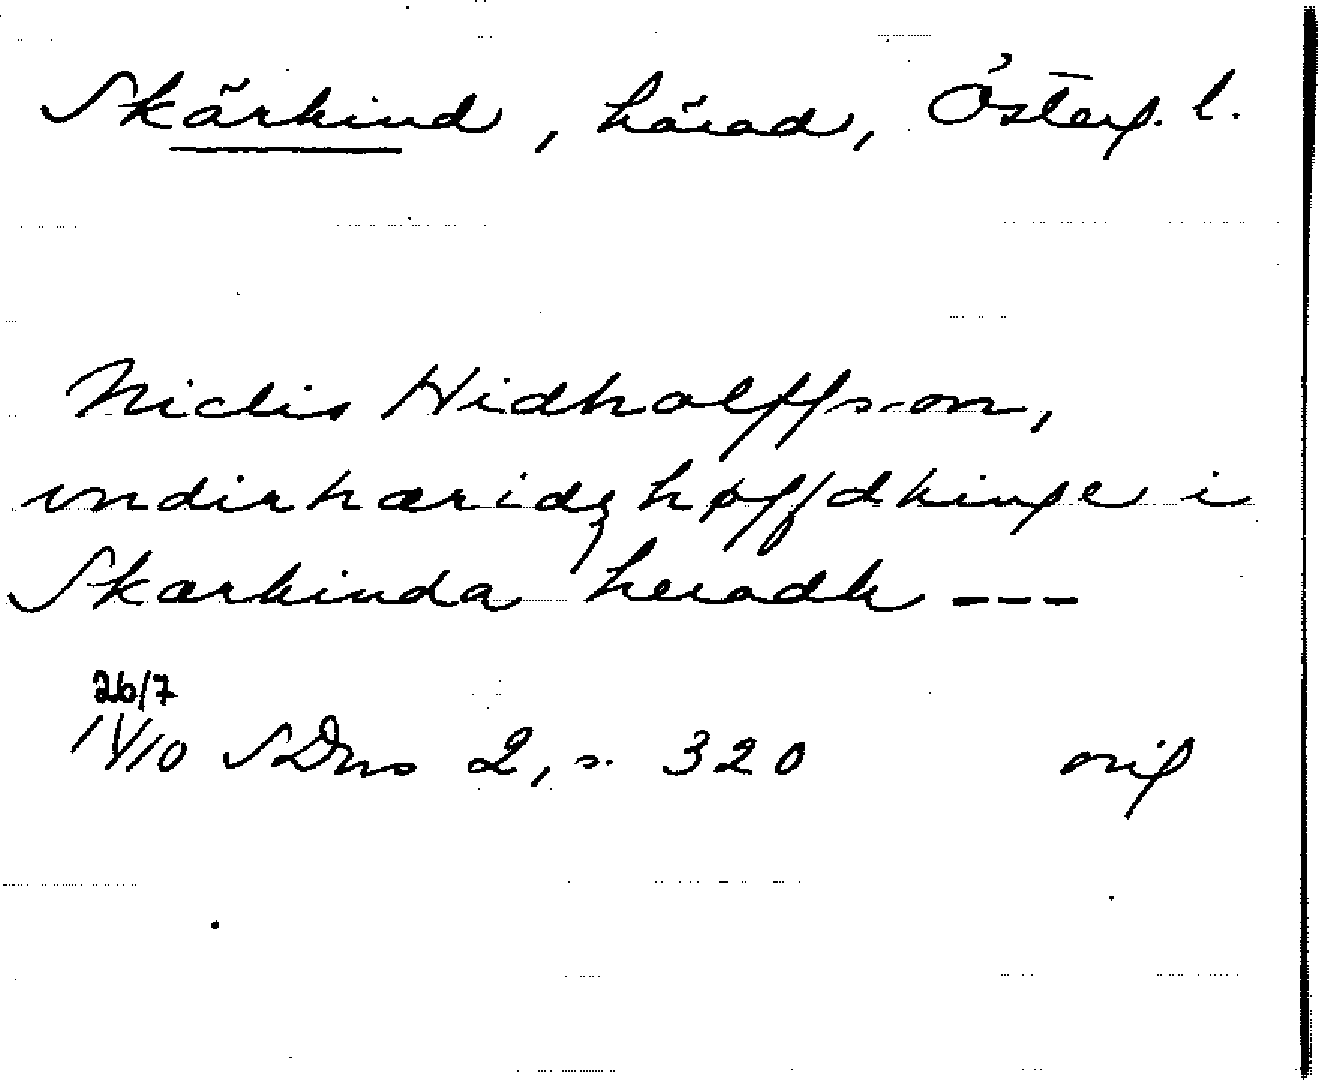 Skärkind, härad, Österg. l.
Niclis Hidholffson,
vndirhæridz høffdhinge i
Skærkinda heradh ---
26/7
14/10 SDns 2, s. 320 orig